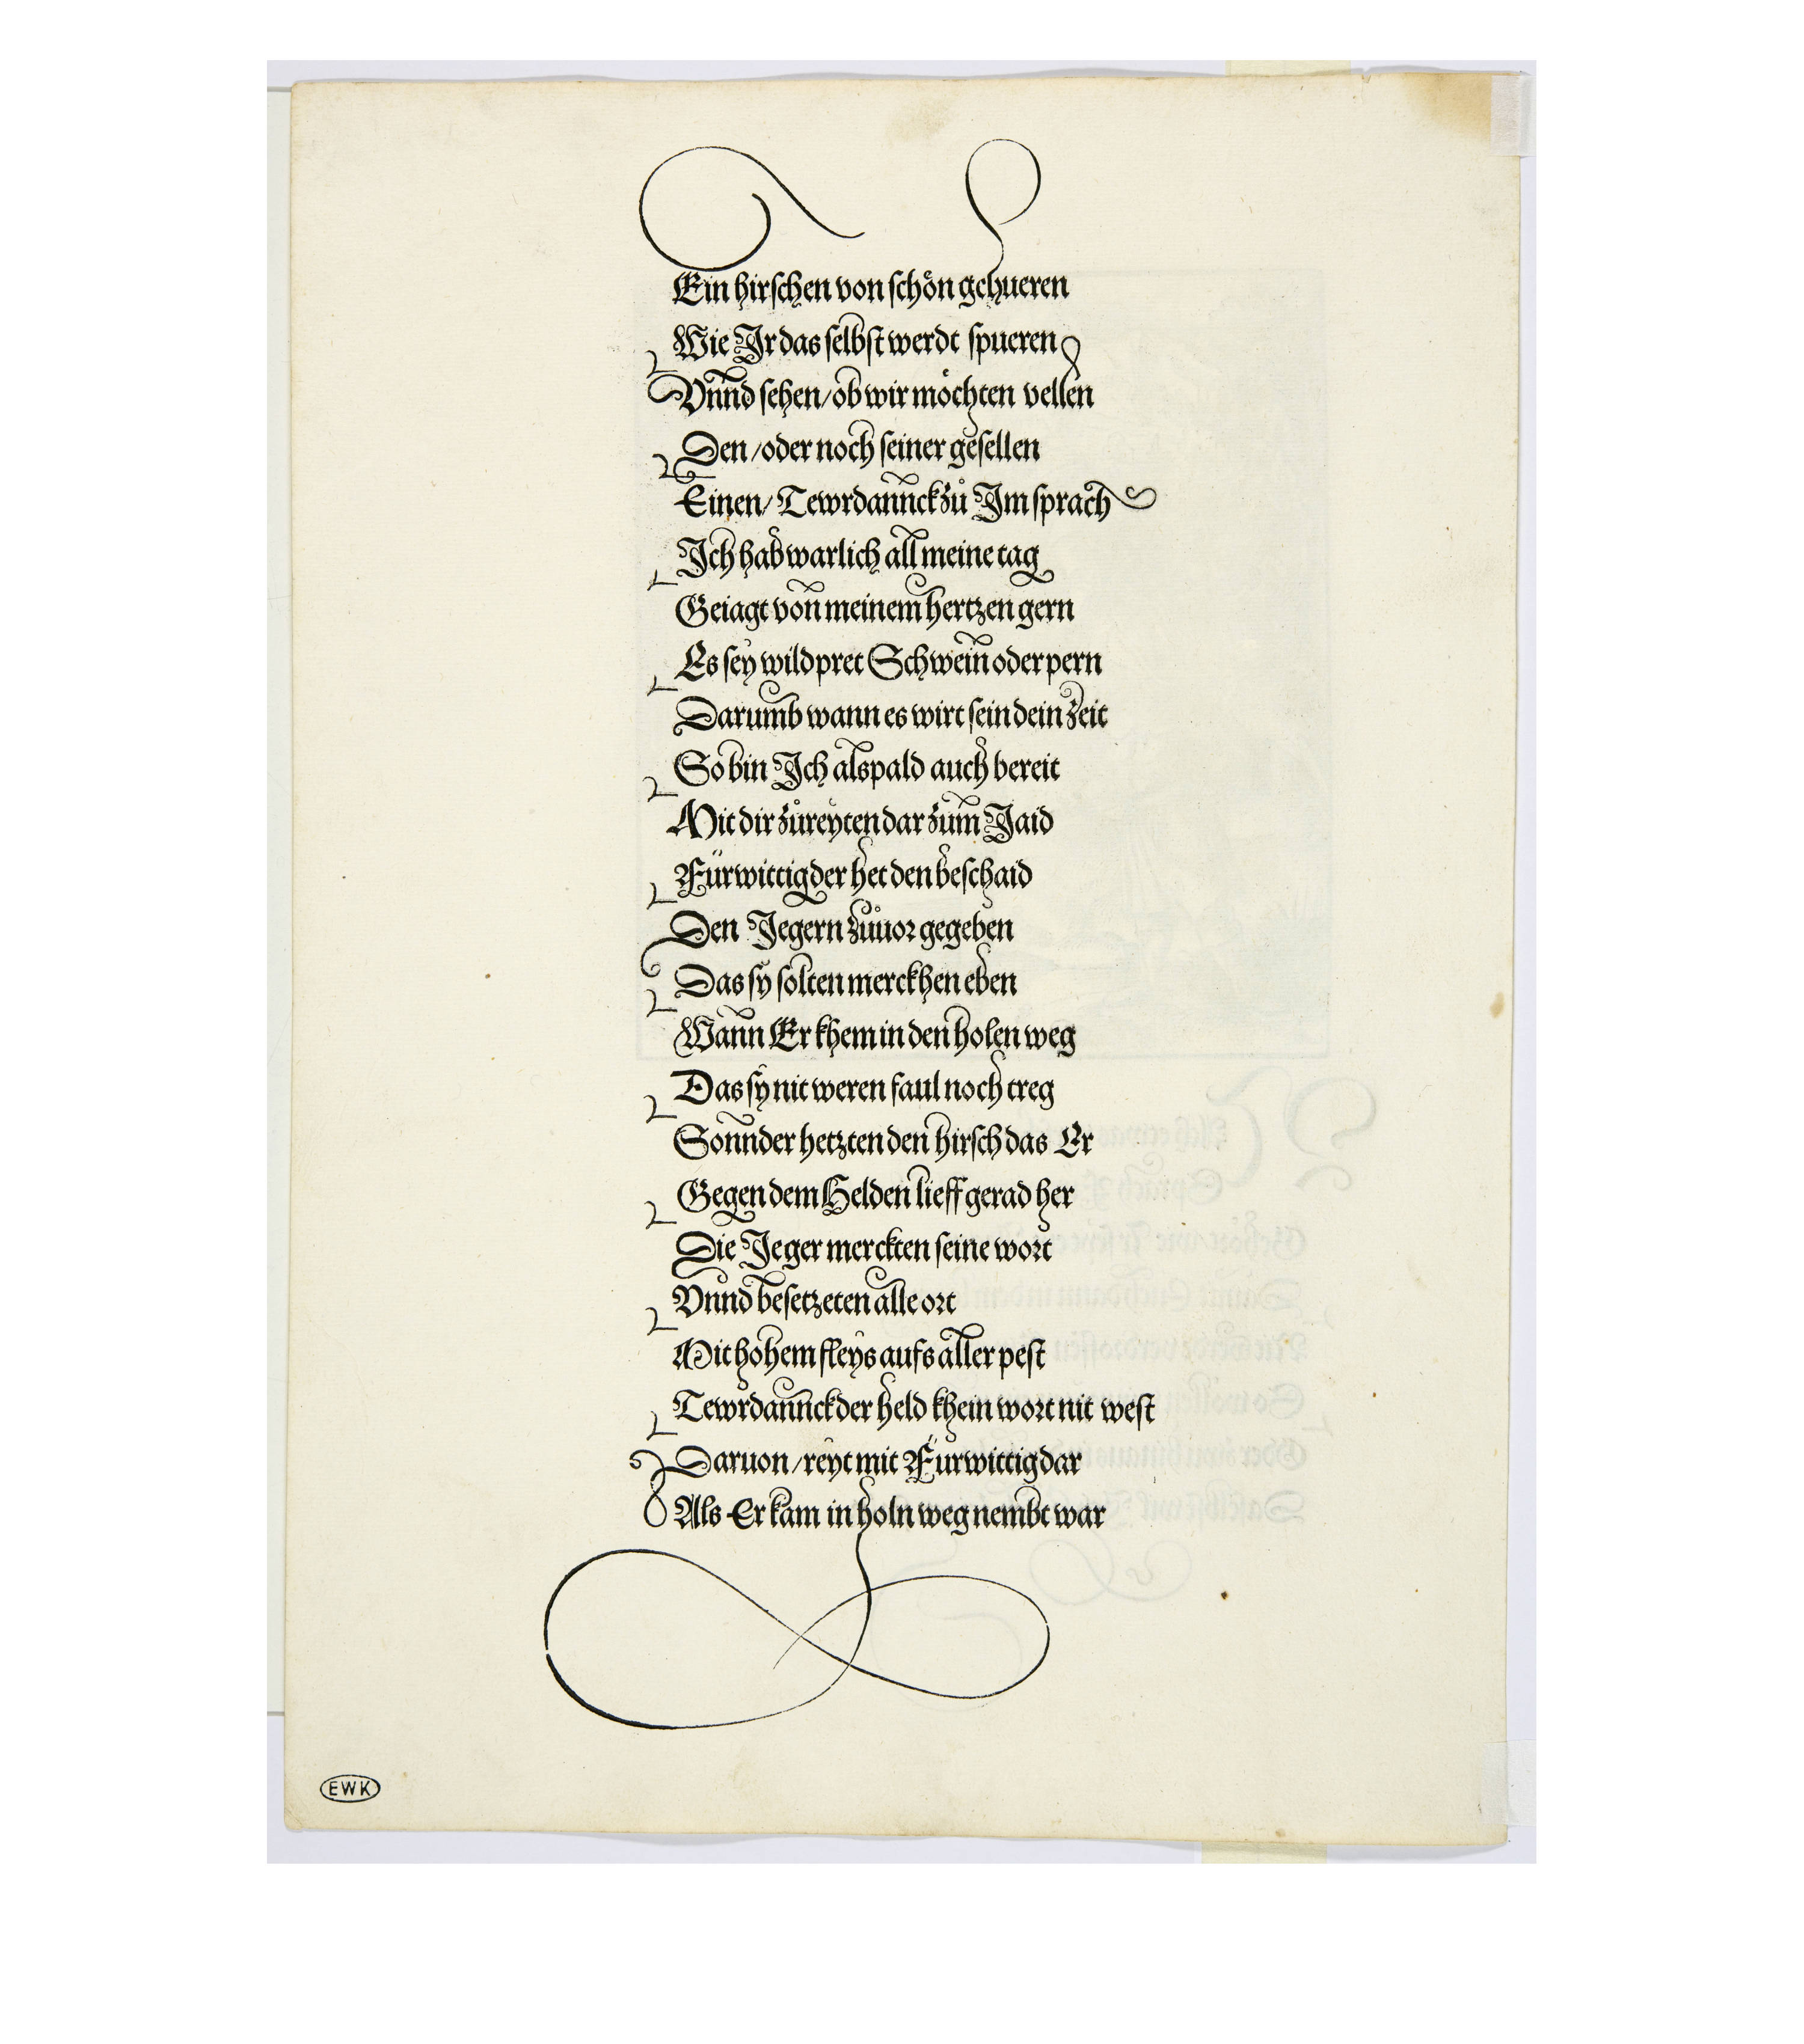 Ein hirschen von schön gehueren
Wie Ir das selbst werdt spueren
Vnnd sehen/ob wir möchten vellen
Den/oder noch seiner gesellen
Einen/Tewrdannck zů Im sprach
Ich hab warlich all meine tag
Geiagt von meinem hertzen gern
Es sey wildpret Schwein oder pern
Darumb wann es wirt sein dein zeit
So bin Ich alspald auch bereit
Mit dir zů reyten dar zům Jaid
Fürwittig der het den beschaid
Den Jegern zůuor gegeben
Das sy solten merckhen eben
Wann Er khem in den holen weg
Das sy nit weren faul noch treg
Sonnder hetzten den hirsch das Er
Gegen dem Helden lieff gerad her
Die Jeger merckten seine wort
Vnnd besetzeten alle ort
Mit hohem fleys aufs aller pest
Tewrdannck der held khein wort nit west
Daruon/reyt mit Fürwittig dar
Als Er kam in holn weg nembt war
EWK